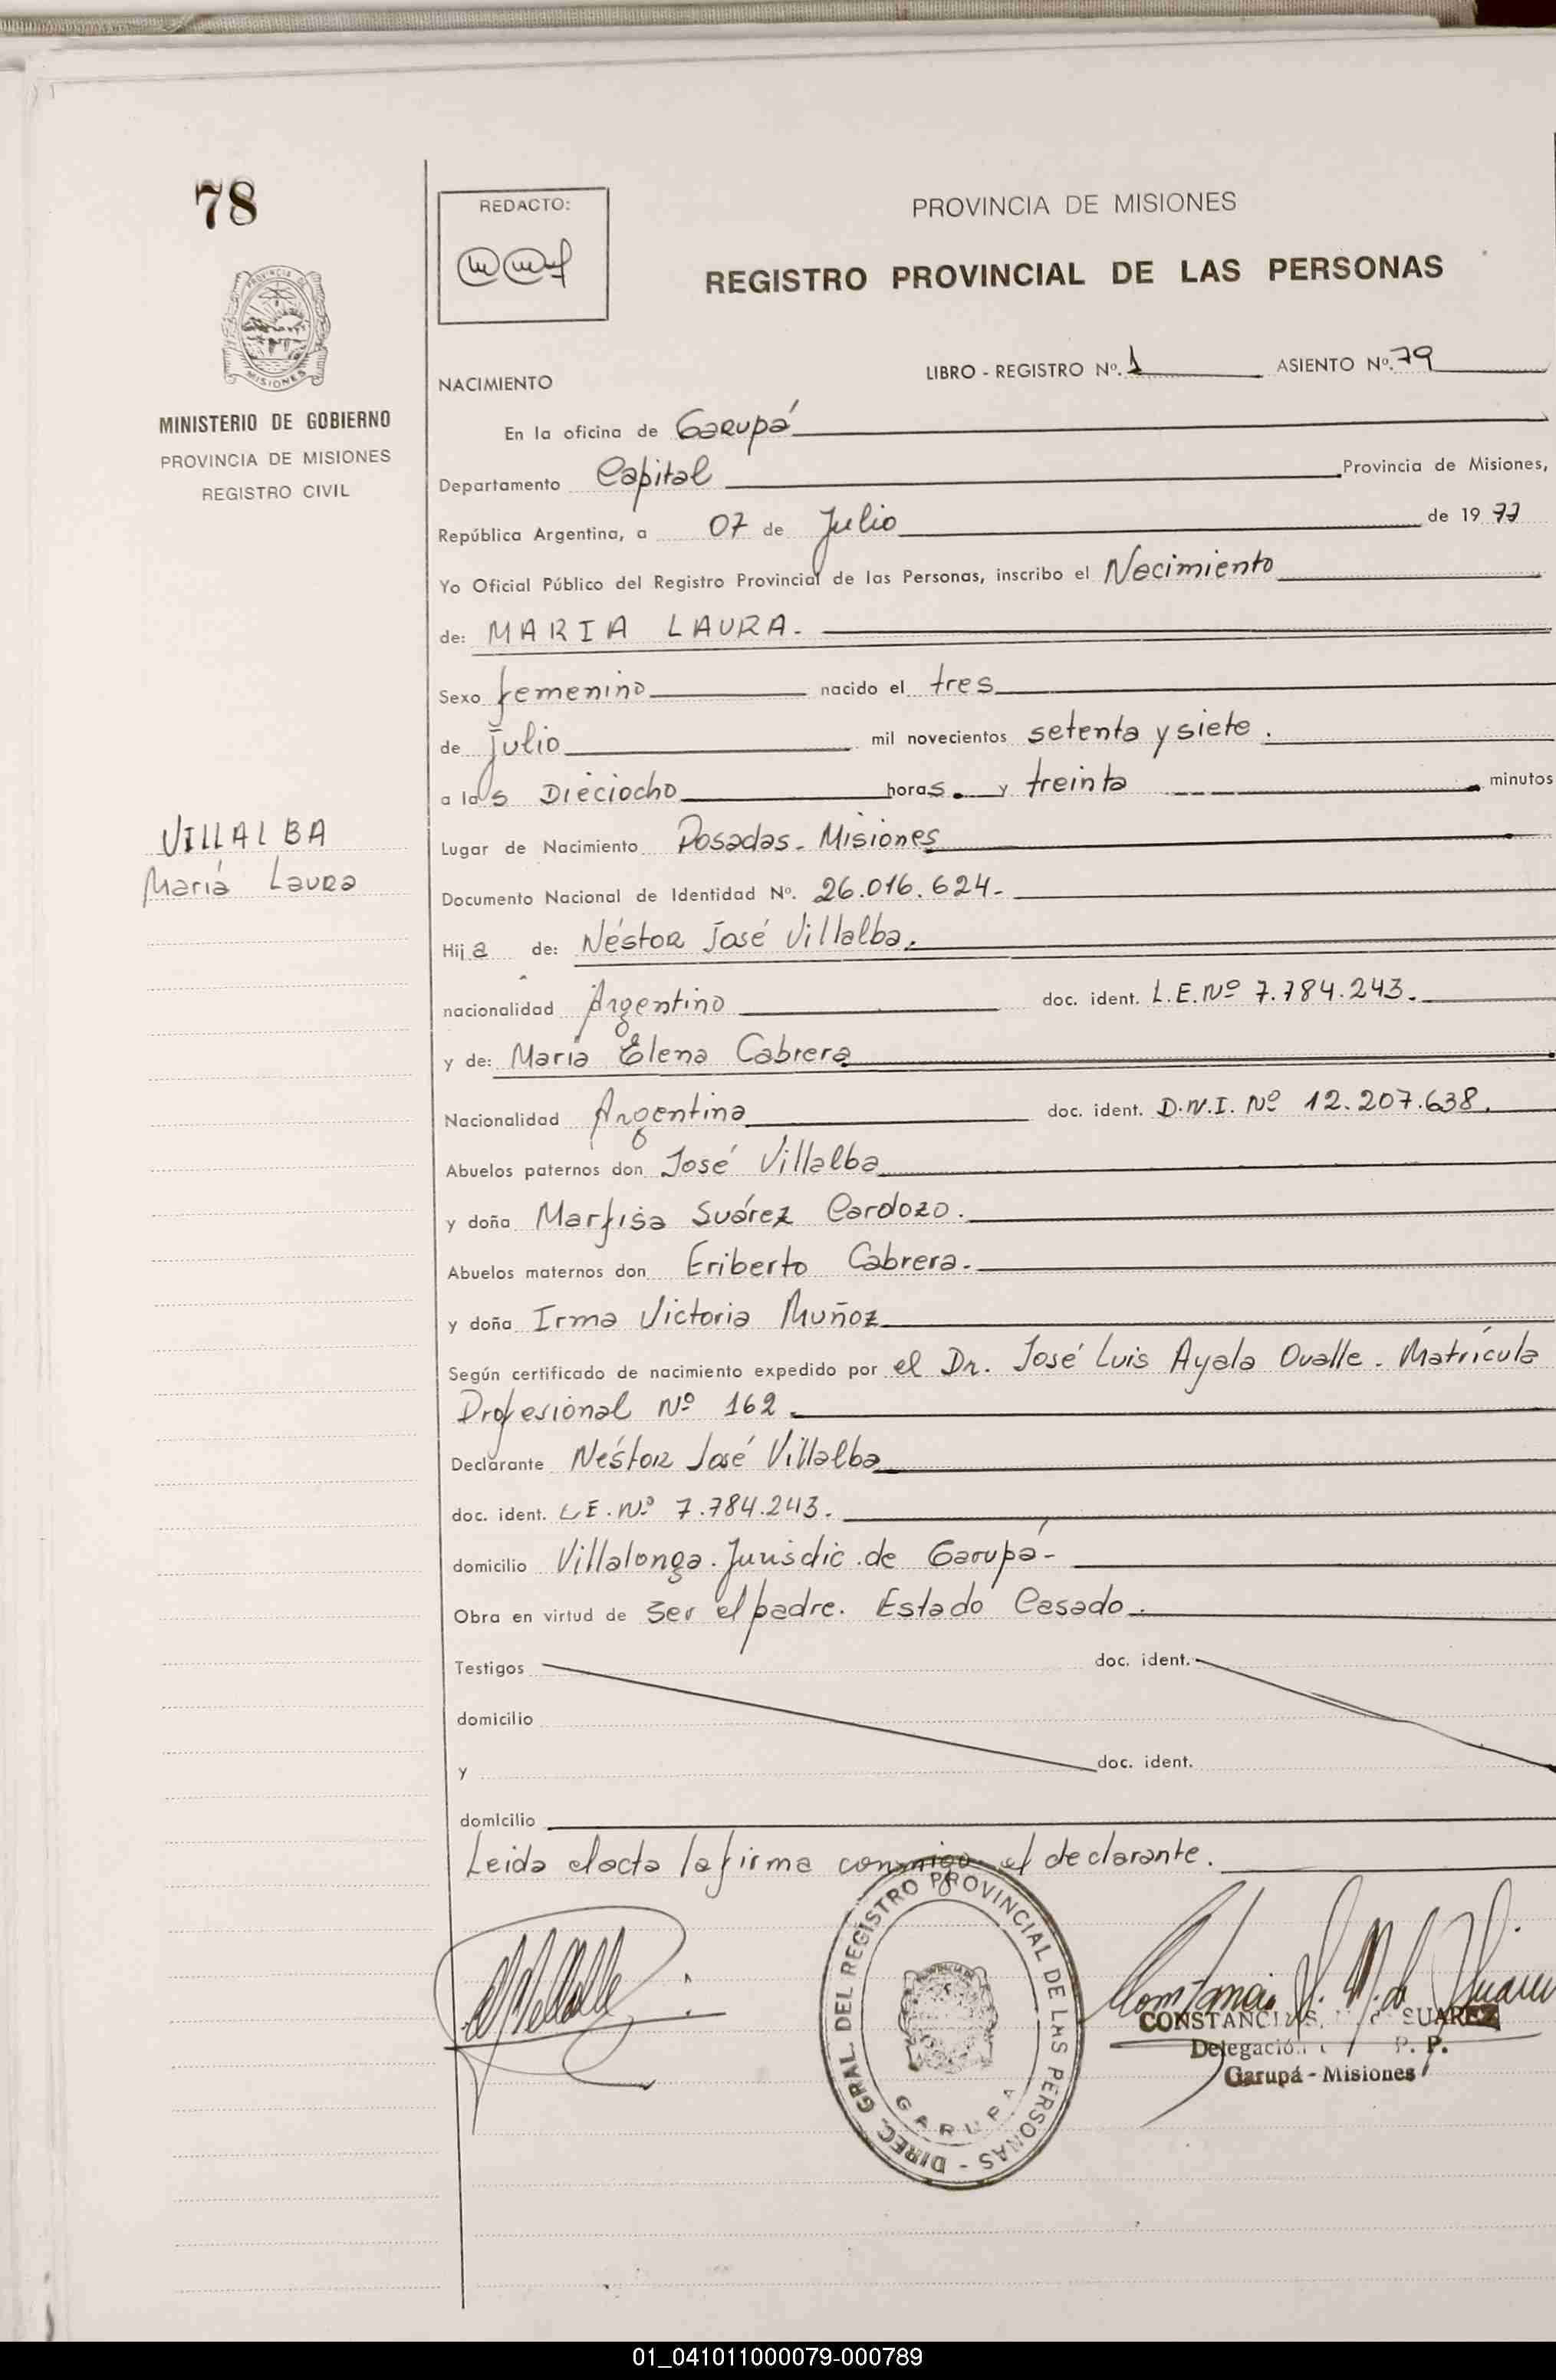 78
REDACTO:
PROVINCIA DE MISIONES
REGISTRO PROVINCIAL DE LAS PERSONAS
PROVINCIA DE
MISIONES
MINISTERIO DE GOBIERNO
PROVINCIA DE MISIONES
REGISTRO CIVIL
VILLALBA
María Laura
NACIMIENTO
LIBRO - REGISTRO Nº. 1 ASIENTO Nº. 79
En la oficina de Garupá
Departamento Capital Provincia de Misiones,
República Argentina, a 07 de Julio de 1977
Yo Oficial Público del Registro Provincial de las Personas, inscribo el Nacimiento
de: MARIA LAURA.
Sexo femenino nacido el tres
de Julio mil novecientos setenta y siete.
a las Dieciocho horas. y treinta minutos
Lugar de Nacimiento Posadas - Misiones
Documento Nacional de Identidad Nº. 26.016.624-
Hija de: Néstor José Villalba.
nacionalidad Argentino doc. ident. L.E.Nº 7.784.243.
y de: María Elena Cabrera
Nacionalidad Argentina doc. ident. D.N.I. Nº 12.207.638.
Abuelos paternos don José Villalba
y doña Marfisa Suárez Cardozo.
Abuelos maternos don Eriberto Cabrera.
y doña Irma Victoria Muñoz
Según certificado de nacimiento expedido por el Dr. José Luis Ayala Ovalle - Matrícula
Profesional Nº 162
Declarante Néstor José Villalba
doc. ident. L.E.Nº 7.784.243.
domicilio Villalonga. Jurisdic. de Garupá-
Obra en virtud de ser el padre. Estado Casado.
Testigos doc. ident.
domicilio
y doc. ident.
domicilio
Leida el acta la firma conmigo el declarante.
DIREC. GRAL. DEL REGISTRO PROVINCIAL DE LAS PERSONAS -
GARUPA
Constancia S. M. de Suarez
CONSTANCIA S. SUAREZ
Delegación P. P.
Garupá - Misiones
01_041011000079-000789